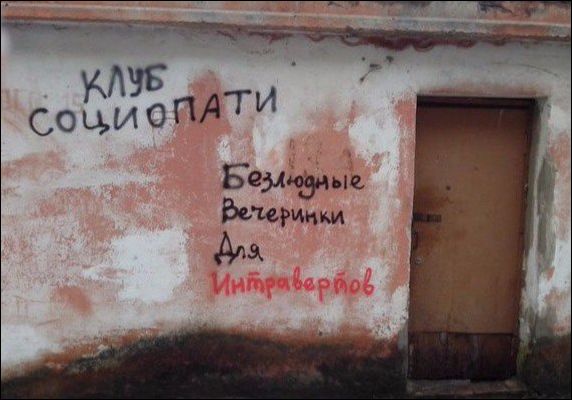 КЛУБ
СОЦИОПАТИ
Безлюдные
Вечеринки
Для
Интравертов